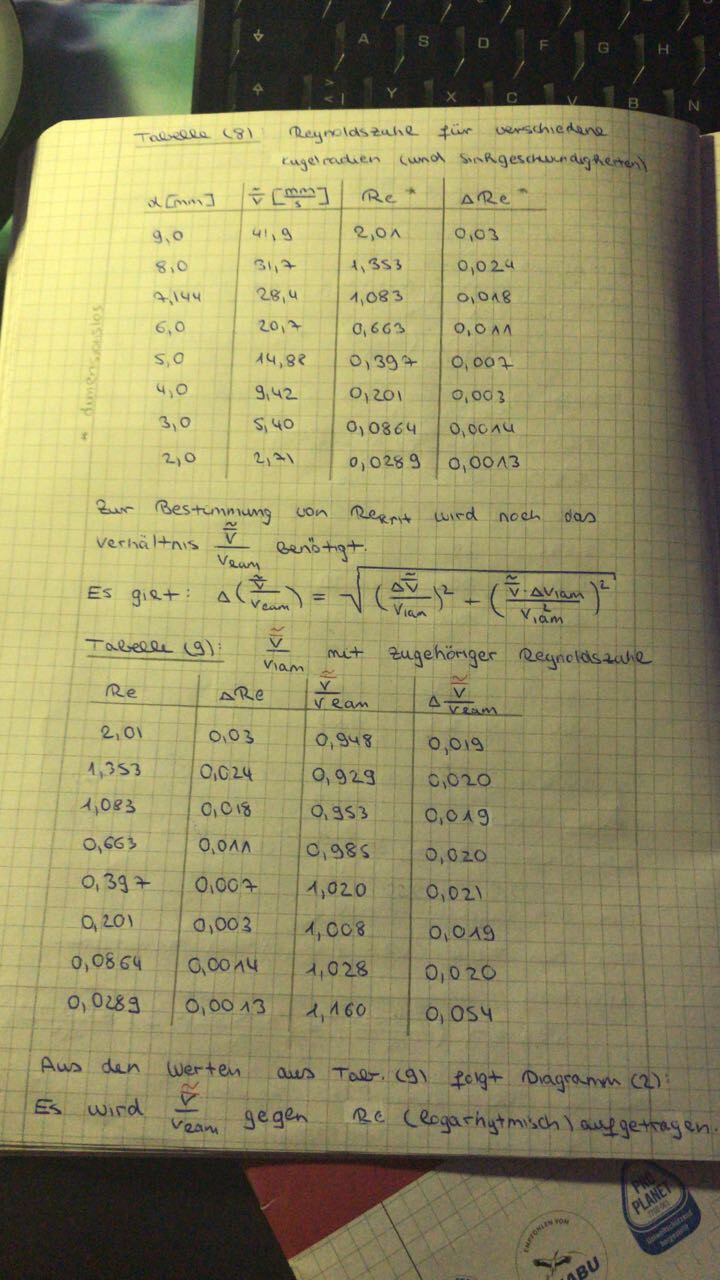 A S D F G H
> < | Y X C V B N
Tabelle (8): Reynoldszahl für verschiedene
Kugelradien (und Sinkgeschwindigkeiten)
d [mm] ṽ̄ [mm/s] Re * ΔRe *
9,0 41,9 2,01 0,03
8,0 31,7 1,353 0,024
7,144 28,4 1,083 0,018
6,0 20,7 0,663 0,011
5,0 14,88 0,397 0,007
4,0 9,42 0,201 0,003
3,0 5,40 0,0864 0,0014
2,0 2,71 0,0289 0,0013
* dimensionslos
Zur Bestimmung von Rekrit wird noch das
Verhältnis ṽ̄/vlam benötigt.
Es gilt: Δ(ṽ̄/vlam) = √((Δṽ̄/vlam)² + (ṽ̄·Δvlam/vlam²)²)
Tabelle (9): ṽ̄/vlam mit zugehöriger Reynoldszahl
Re ΔRe ṽ̄/vlam Δ ṽ̄/vlam
2,01 0,03 0,948 0,019
1,353 0,024 0,929 0,020
1,083 0,018 0,953 0,019
0,663 0,011 0,985 0,020
0,397 0,007 1,020 0,021
0,201 0,003 1,008 0,019
0,0864 0,0014 1,028 0,020
0,0289 0,0013 1,160 0,054
Aus den Werten aus Tab. (9) folgt Diagramm (2):
Es wird ṽ̄/vlam gegen Re (logarhytmisch) aufgetragen.
PRO
PLANET
EMPFOHLEN VOM
NABU